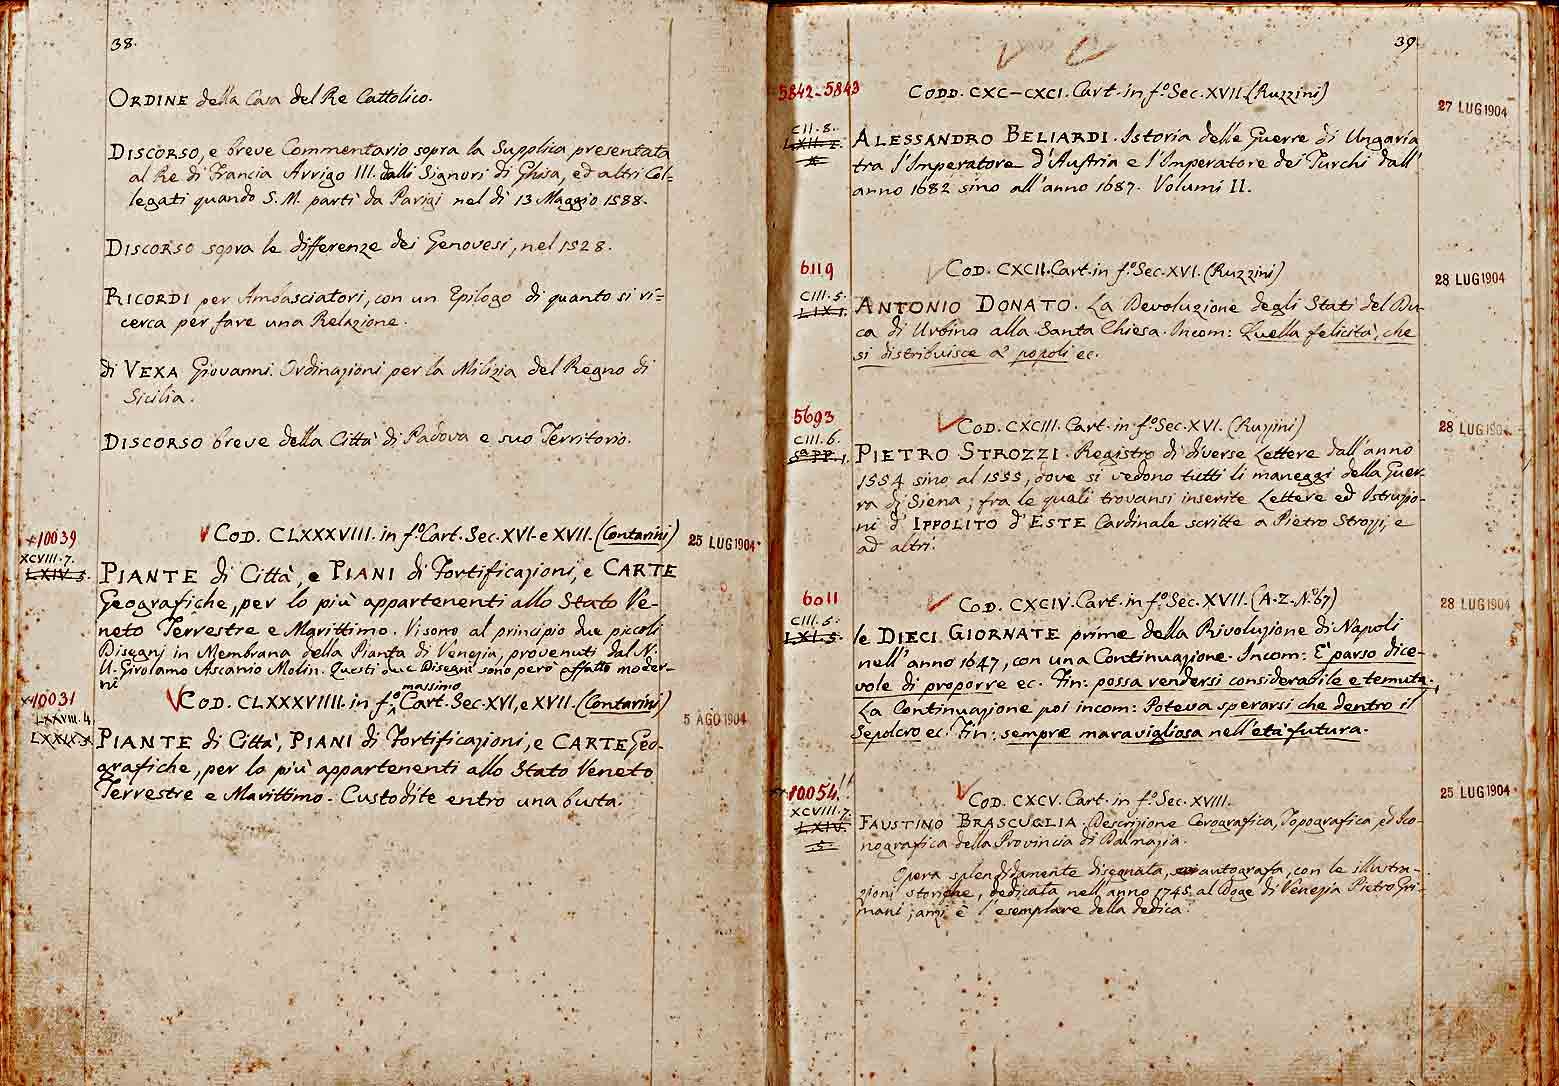 38.
ORDINE della Casa del Re Cattolico.
DISCORSO, e breve Commentario sopra la Supplica presentata
al Re di Francia Arrigo III. dalli Signori di Ghisa, ed altri Col=
legati quando S. M. partì da Parigi nel dì 13 Maggio 1588.
DISCORSO sopra le differenze dei Genovesi, nel 1528.
RICORDI per Ambasciatori, con un Epilogo di quanto si ri=
cerca per fare una Relazione.
di VEXA Giovanni. Ordinazioni per la Milizia del Regno di
Sicilia.
DISCORSO breve della Città di Padova e suo Territorio.
+10039
XCVIII.7.
LXIV.5.
COD. CLXXXVIII. in fo. Cart. Sec. XVI. e XVII. (Contarini)
25 LUG 1904
PIANTE di Città, e PIANI di Fortificazioni, e CARTE
Geografiche, per lo più appartenenti allo Stato Ve-
neto Terrestre e Marittimo. Vi sono al principio due piccoli
Disegni in Membrana della Pianta di Venezia, provenuti dal N.
U. Girolamo Ascanio Molin. Questi due Disegni sono però affatto moder-
ni
+10031
LXXVIII.4.
COD. CLXXXVIIII. in fo. massimo Cart. Sec. XVI, e XVII. (Contarini)
5 AGO 1904
PIANTE di Città, PIANI di Fortificazioni, e CARTE Geo-
grafiche, per lo più appartenenti allo Stato Veneto
Terrestre e Marittimo. Custodite entro una busta.
39.
5842-5843
CII.8.
CODD. CXC-CXCI. Cart. in fo. Sec. XVII. (Ruzzini)
27 LUG 1904
ALESSANDRO BELIARDI. Istoria delle Guerre di Ungaria
tra l'Imperatore d'Austria e l'Imperatore dei Turchi dall'
anno 1682 sino all'anno 1687. Volumi II.
6119
CIII.5.
LIX.1.
COD. CXCII. Cart. in fo. Sec. XVI. (Ruzzini)
28 LUG 1904
ANTONIO DONATO. La Devoluzione degli Stati del Du-
ca di Urbino alla Santa Chiesa. Incom: Quella felicità, che
si distribuisce a' popoli ec.
5693
CIII.6.
COD. CXCIII. Cart. in fo. Sec. XVI. (Ruzzini)
28 LUG 1904
PIETRO STROZZI. Registro di diverse Lettere dall'anno
1554 sino al 1555, dove si vedono tutti li maneggi della Guer-
ra di Siena; fra le quali trovansi inserite Lettere ed Istruzio-
ni d'IPPOLITO d'ESTE Cardinale scritte a Pietro Strozzi, e
ad altri.
6011
CIII.5.
LXI.5.
COD. CXCIV. Cart. in fo. Sec. XVII. (A.Z. No. 67)
28 LUG 1904
le DIECI GIORNATE prime della Rivoluzione di Napoli
nell'anno 1647, con una Continuazione. Incom: È parso dice-
vole di proporre ec. Fin: possa rendersi considerabile e temuta.
La Continuazione poi incom: Poteva sperarsi che dentro il
Sepolcro ec. Fin: sempre maravigliosa nell'età futura.
10054!!
XCVIII.7.
LXIV.
5.
COD. CXCV. Cart. in fo. Sec. XVIII.
25 LUG 1904
FAUSTINO BRASCUGLIA. Descrizione Corografica, Topografica ed Ico-
nografica della Provincia di Dalmazia.
Opera splendidamente disegnata, autografa, con le illustra-
zioni storiche, dedicata nell'anno 1745. al Doge di Venezia Pietro Gri-
mani; anzi è l'esemplare della dedica.